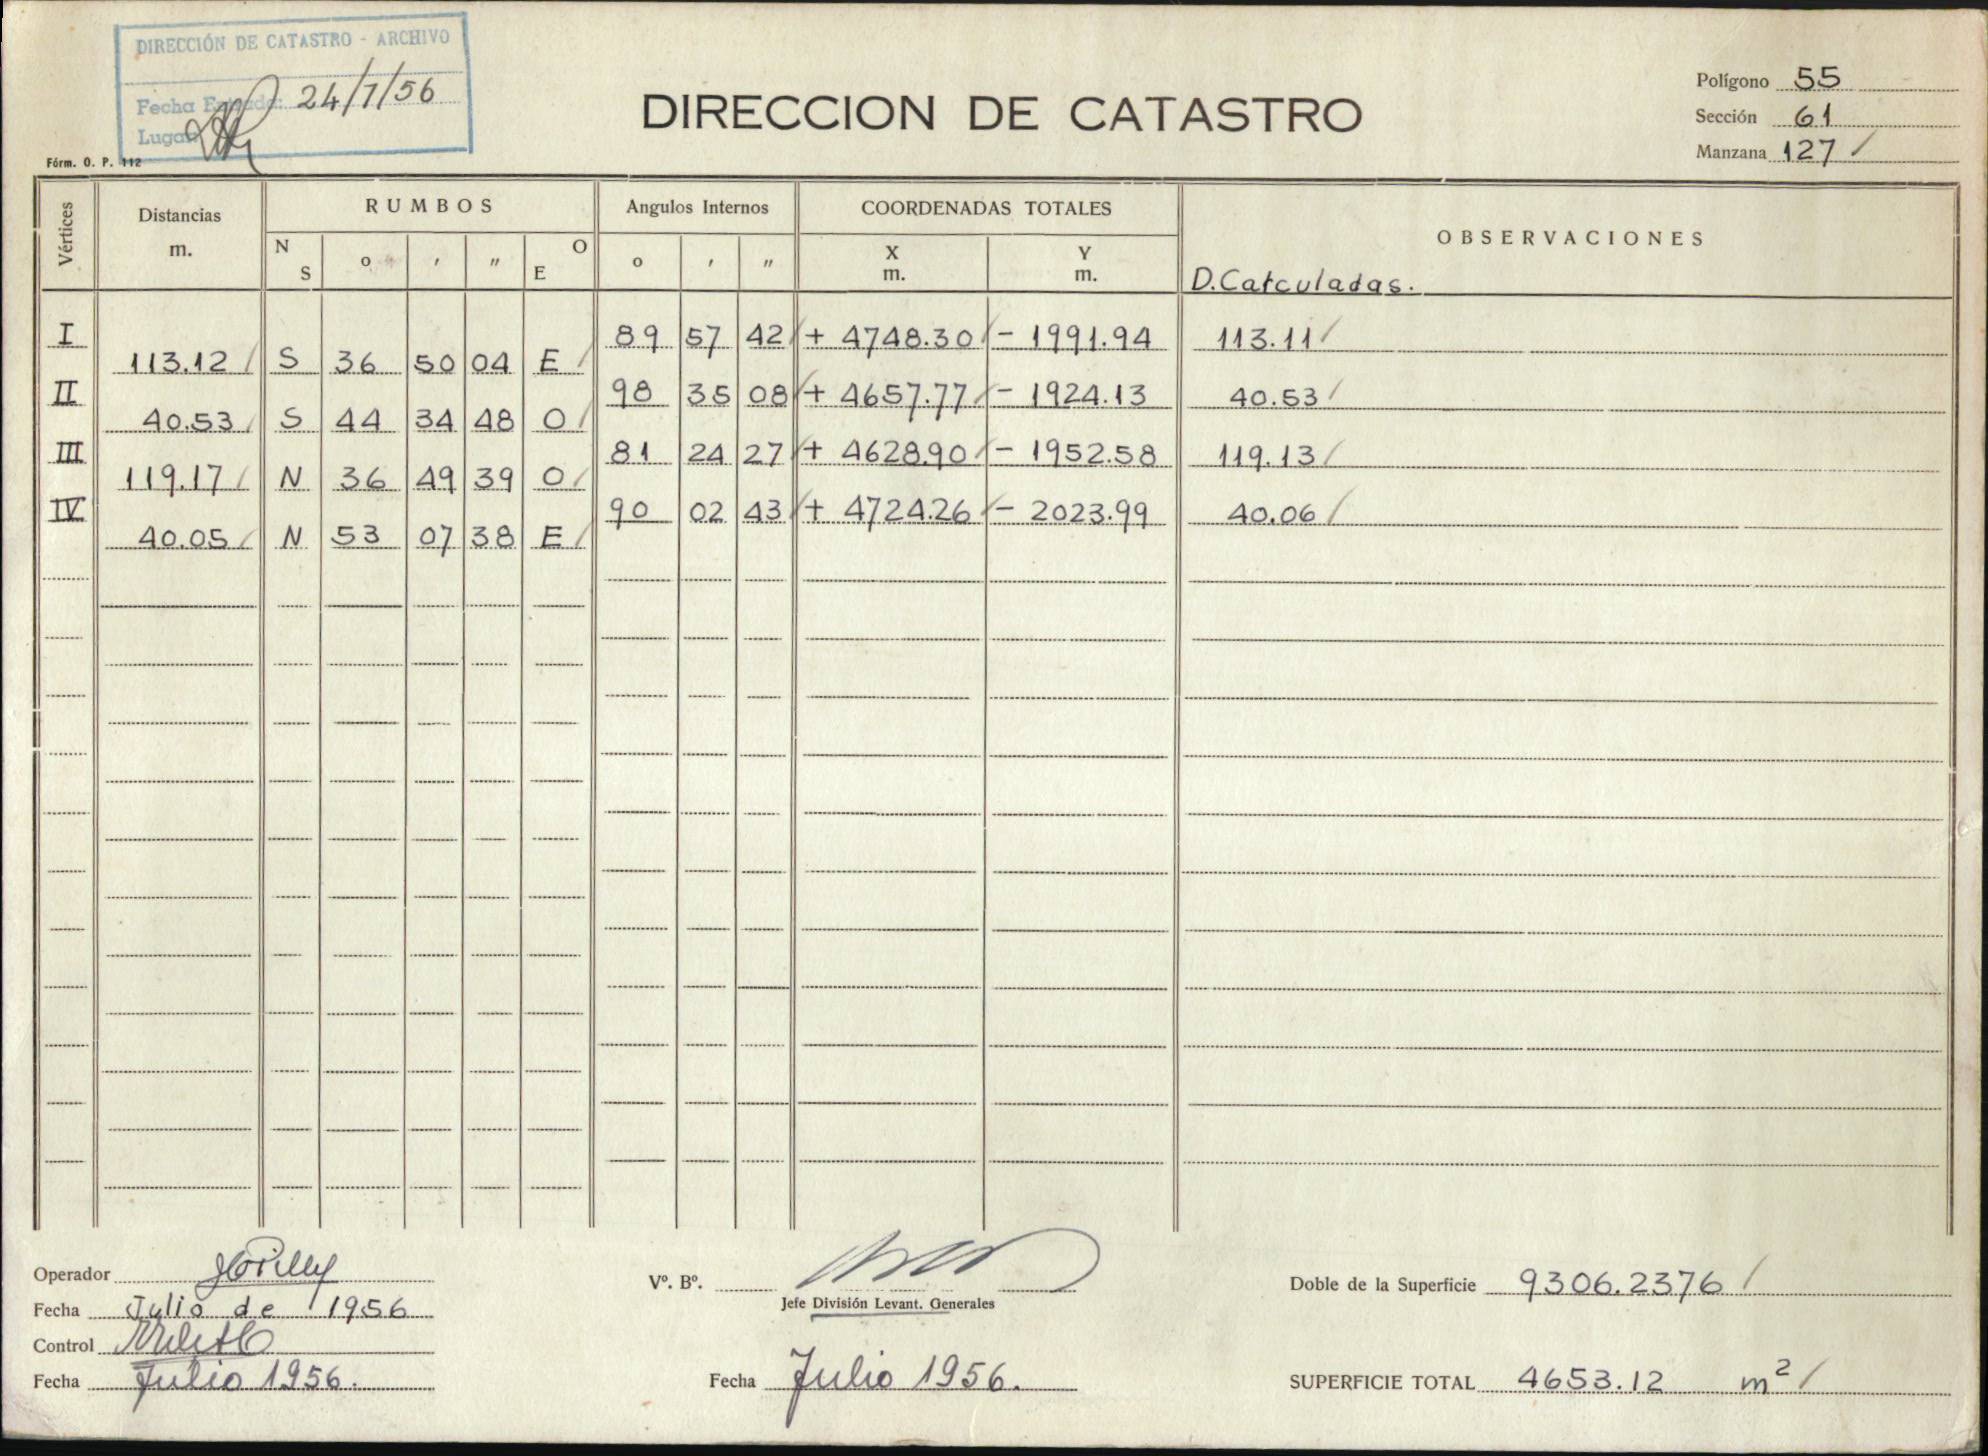 DIRECCIÓN DE CATASTRO - ARCHIVO
Fecha 24/7/56
Lugar
Fórm. O. P. 112
DIRECCION DE CATASTRO
Polígono 55
Sección 61
Manzana 127 /
Vértices Distancias m. RUMBOS Angulos Internos COORDENADAS TOTALES OBSERVACIONES
N S o ' " O E o ' " X m. Y m. D. Calculadas.
I 89 57 42 / + 4748.30 / - 1991.94 113.11 /
113.12 / S 36 50 04 E /
II 98 35 08 / + 4657.77 / - 1924.13 40.53 /
40.53 / S 44 34 48 O /
III 81 24 27 / + 4628.90 / - 1952.58 119.13 /
119.17 / N 36 49 39 O /
IV 90 02 43 / + 4724.26 / - 2023.99 40.06 /
40.05 / N 53 07 38 E /
Operador
Fecha Julio de 1956
Control
Fecha Julio 1956.
Vº. Bº.
Jefe División Levant. Generales
Fecha Julio 1956.
Doble de la Superficie 9306.2376 /
SUPERFICIE TOTAL 4653.12 m² /